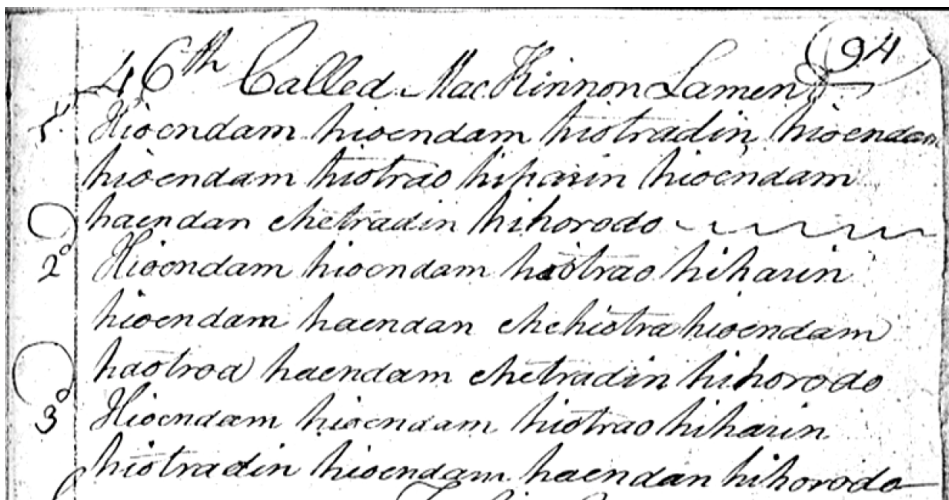 94
46th Called MacKinnon Lament
1. Hioendam hioendam hiotradin hioendam
hioendam hiotrao hiharin hioendam
haendan chetradin hihorodo
2d Hioendam hioendam hiotrao hiharin
hioendam haendan chehiotra hioendam
haotroa haendam chetradin hihorodo
3d Hioendam hioendam hiotrao hiharin
hiotradin hioendam haendan hihorodo